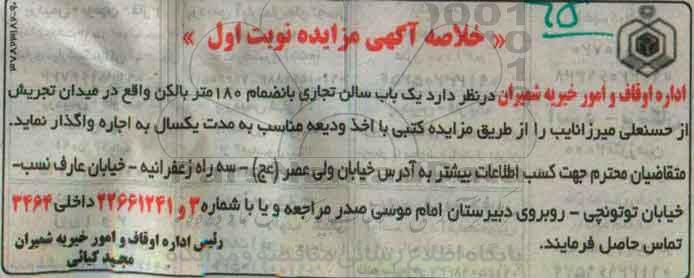 « خلاصه آگهی مزایده نوبت اول »
اداره اوقاف و امور خیریه شمیران درنظر دارد یک باب سالن تجاری بانضمام ۱۸۰متر بالکن واقع در میدان تجریش
از حسنعلی میرزانایب را از طریق مزایده کتبی با اخذ ودیعه مناسب به مدت یکسال به اجاره واگذار نماید.
متقاضیان محترم جهت کسب اطلاعات بیشتر به آدرس خیابان ولی عصر (عج) - سه راه زعفرانیه - خیابان عارف نسب-
خیابان توتونچی - روبروی دبیرستان امام موسی صدر مراجعه و یا با شماره ۳ و ۲۲۶۶۱۲۴۱ داخلی ۳۴۶۴
تماس حاصل فرمایند.
رئیس اداره اوقاف و امور خیریه شمیران
مجید کیائی